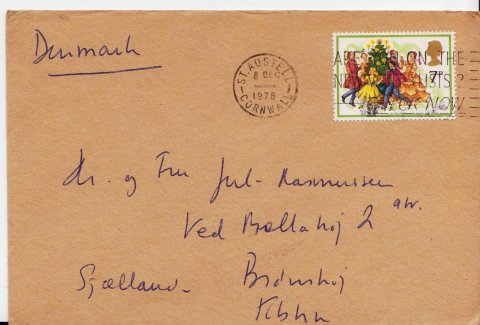 Denmark
ST. AUSTELL
8 DEC
1978
CORNWALL
ARE YOU ON THE
NEW LISTS?
CHECK NOW
7p
Hr. og Fru Jul-Rasmussen
Ved Bellahøj 2
Sjælland
Brønshøj
Kbhn